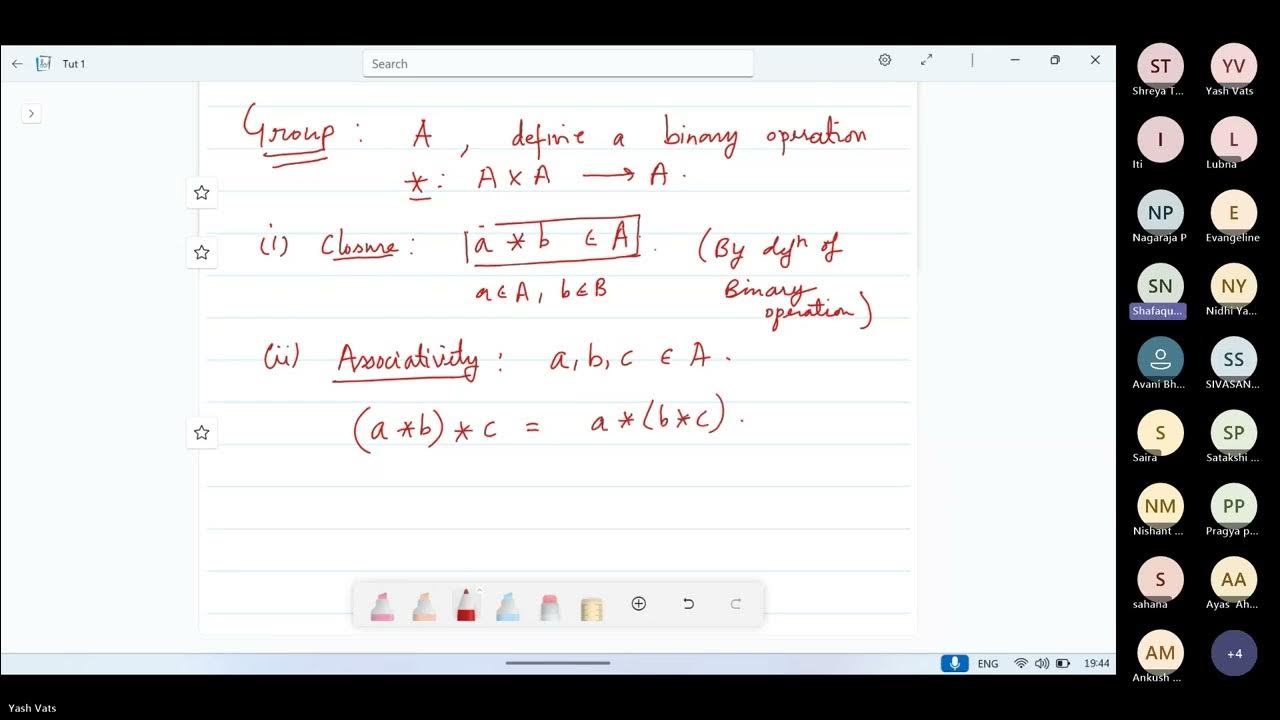 Tut 1
Search
Group : A , define a binary operation
* : A × A → A .
(i) Closure : a * b ∈ A . (By defn of
a ∈ A , b ∈ B Binary
operation)
(ii) Associativity : a, b, c ∈ A .
(a * b) * c = a * (b * c) .
ENG 19:44
ST YV
Shreya T... Yash Vats
I L
Iti Lubna
NP E
Nagaraja P Evangeline
SN NY
Shafaqu... Nidhi Ya...
SS
Avani Bh... SIVASAN...
S SP
Saira Satakshi ...
NM PP
Nishant ... Pragya p...
S AA
sahana Ayas Ah...
AM +4
Ankush ...
Yash Vats